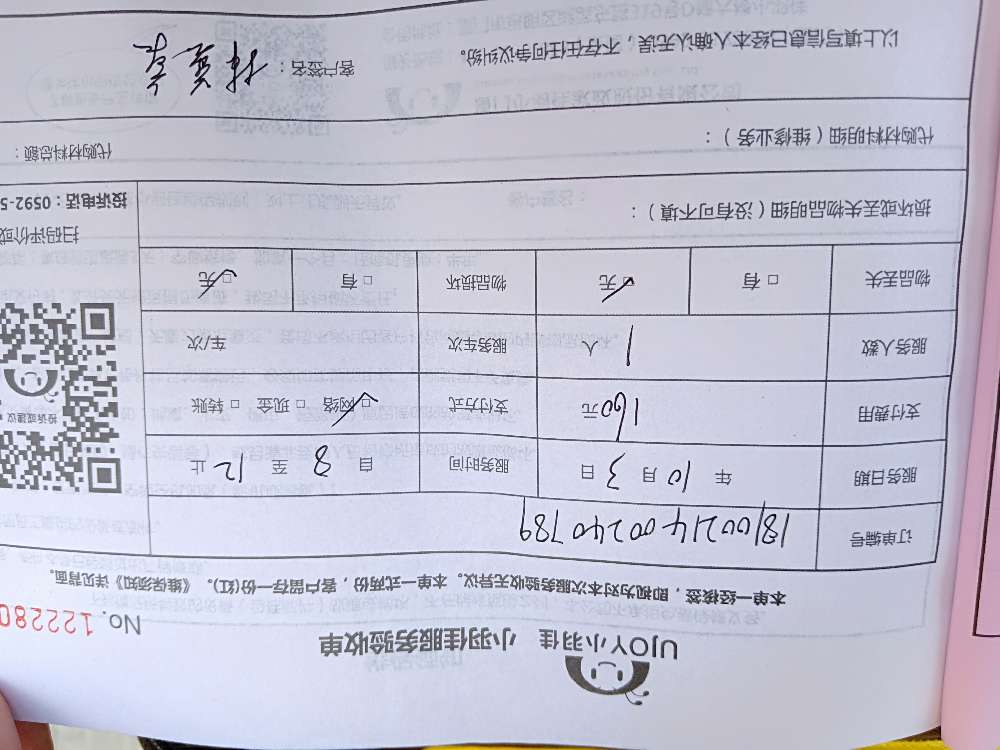 UJOY小羽佳 小羽佳服务验收单
No.122280
本单一经核签，即视为对本次服务验收无异议。本单一式两份，客户留存一份(红)。《雇保须知》详见背面。
订单编号 1810021400240789
服务日期 年 10 月 3 日 服务时间 自 8 至 12 止
支付费用 160元 支付方式 ☑ 网络 □ 现金 □ 转账
服务人数 1 人 服务车次 车/次
物品丢失 □ 有 ☑ 无 物品损坏 □ 有 ☑ 无
投诉或建议
扫码评价或
投诉电话：0592-5
损坏或丢失物品明细（没有可不填）：
代购材料明细（维修业务）： 代购材料总额：
以上填写信息已经本人确认无误，不存在任何争议纠纷。 客户签名：